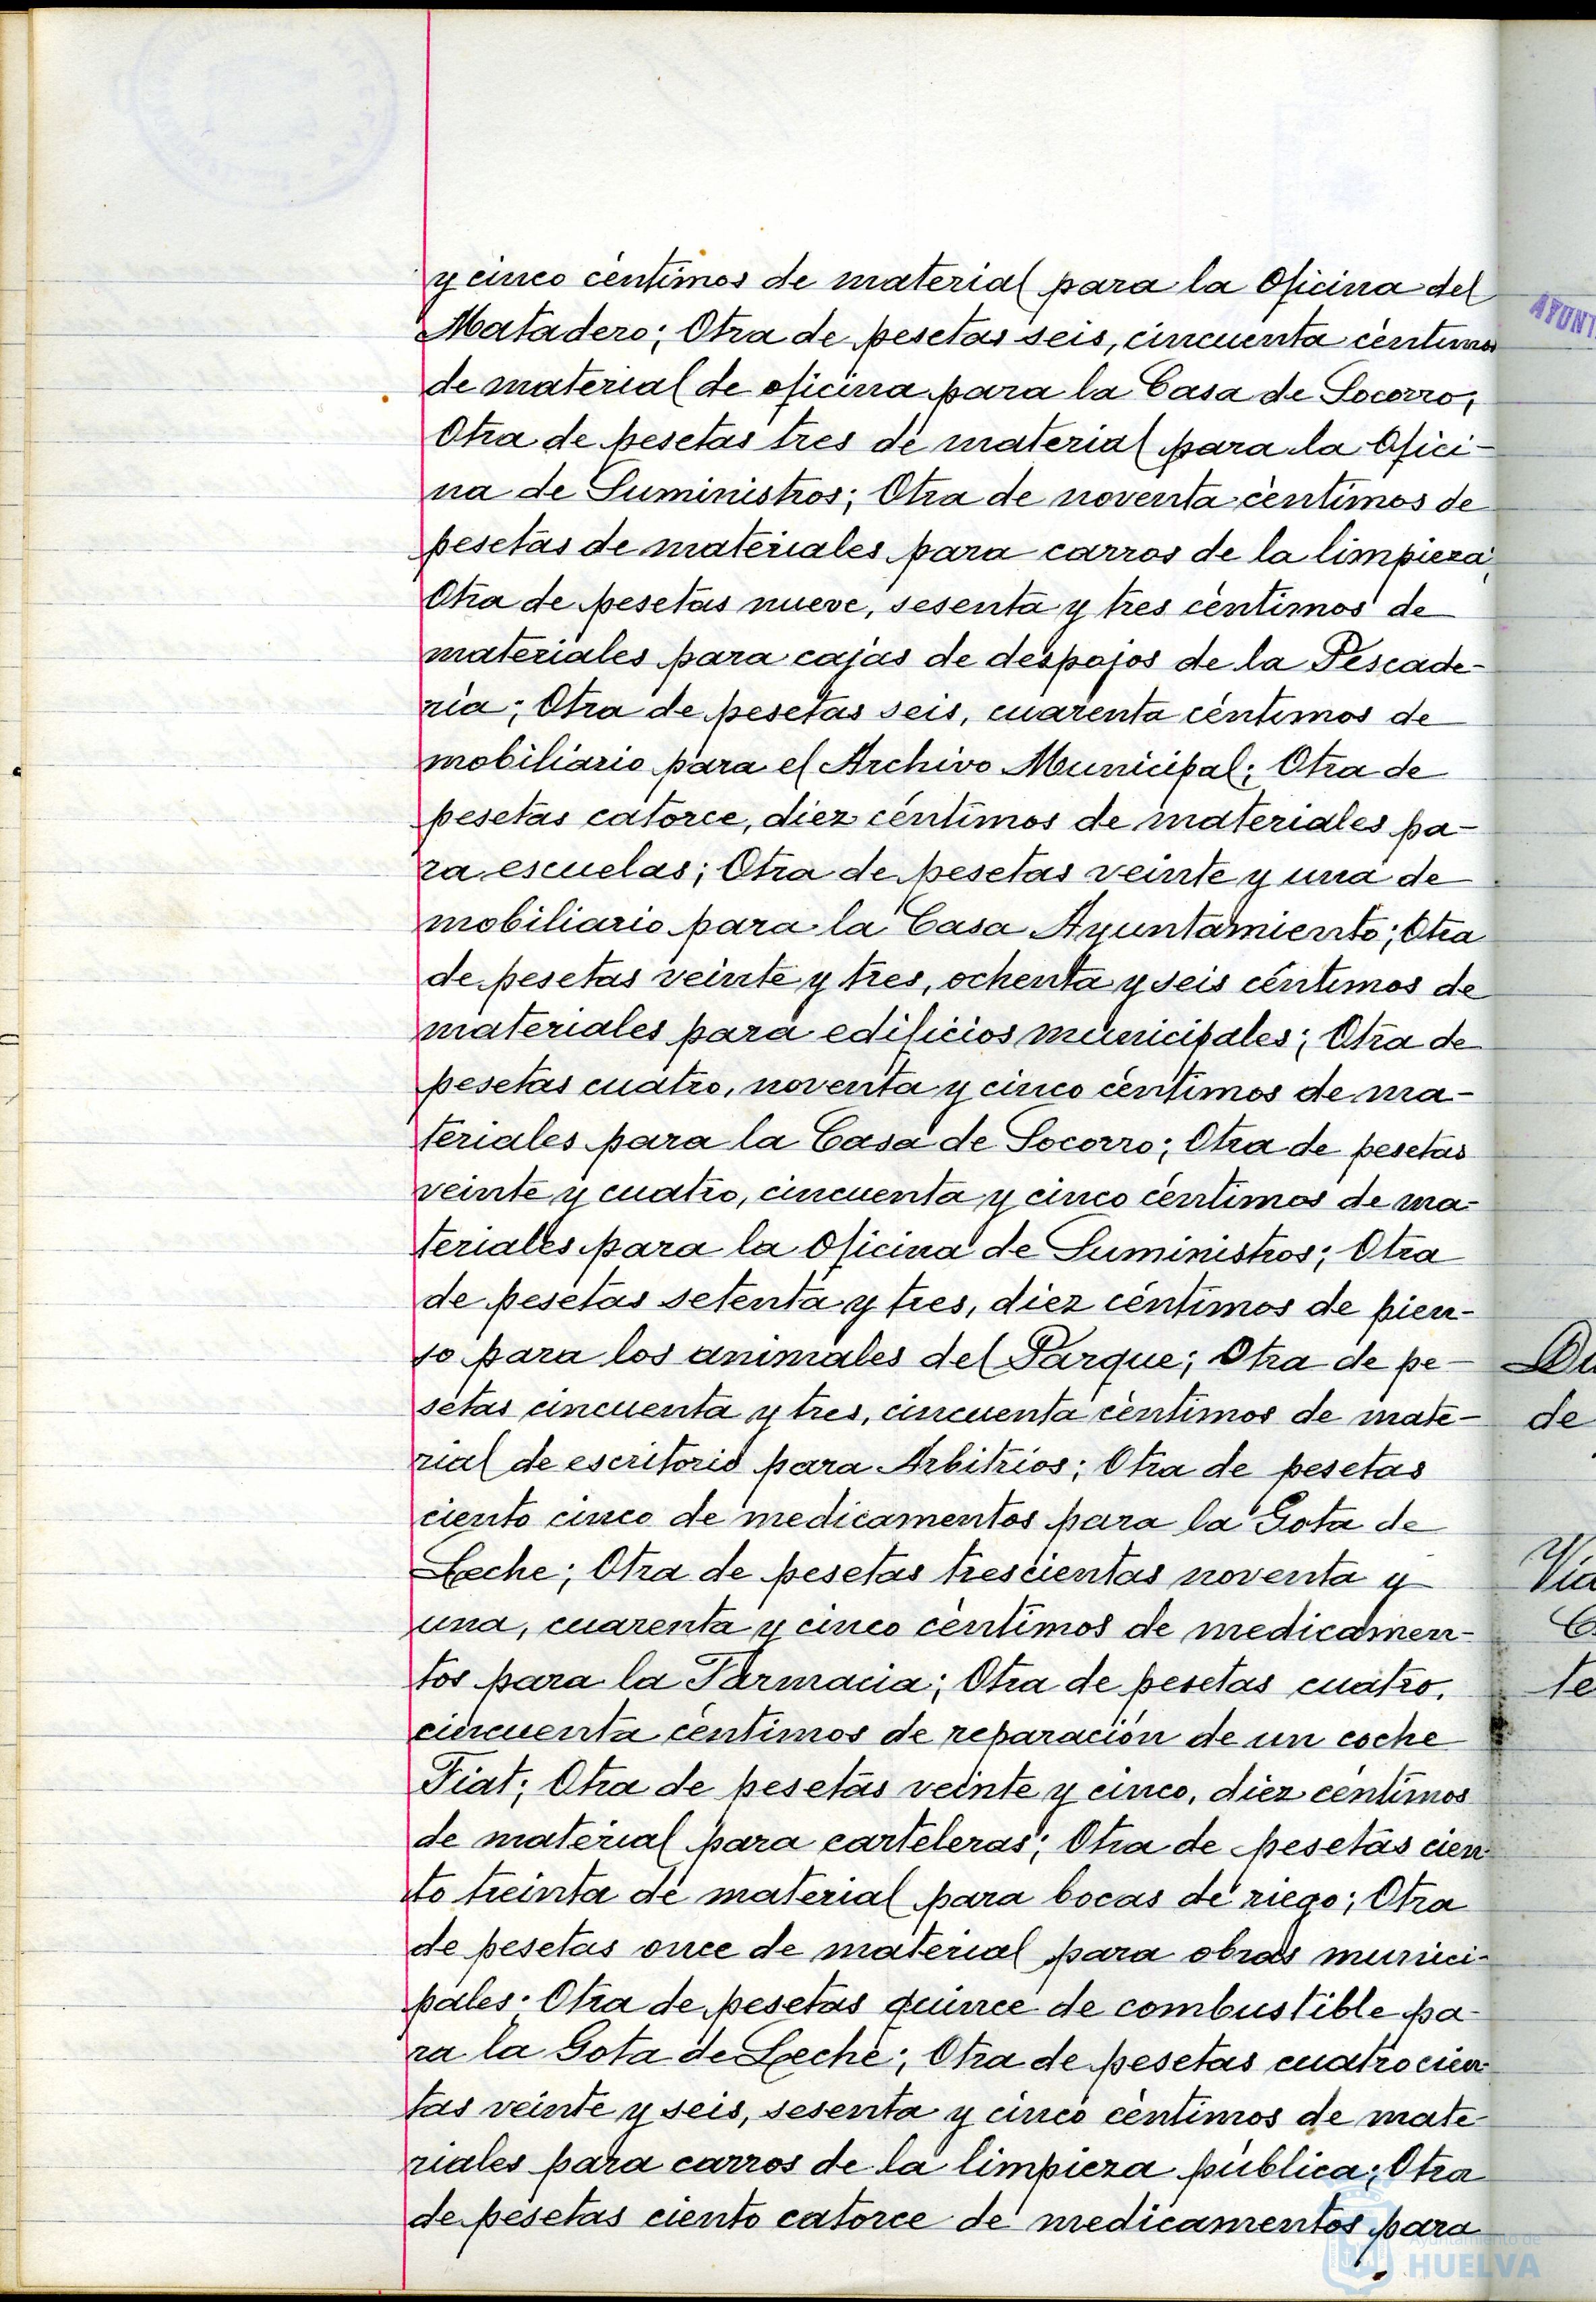 y cinco céntimos de material para la Oficina del
Matadero; Otra de pesetas seis, cincuenta céntimos
de material de oficina para la Casa de Socorro;
Otra de pesetas tres de material para la Ofici-
na de Suministros; Otra de noventa céntimos de
pesetas de materiales para carros de la limpieza;
Otra de pesetas nueve, sesenta y tres céntimos de
materiales para cajas de despojos de la Pescade-
ría; Otra de pesetas seis, cuarenta céntimos de
mobiliario para el Archivo Municipal; Otra de
pesetas catorce, diez céntimos de materiales pa-
ra escuelas; Otra de pesetas veinte y una de
mobiliario para la Casa Ayuntamiento; Otra
de pesetas veinte y tres, ochenta y seis céntimos de
materiales para edificios municipales; Otra de
pesetas cuatro, noventa y cinco céntimos de ma-
teriales para la Casa de Socorro; Otra de pesetas
veinte y cuatro, cincuenta y cinco céntimos de ma-
teriales para la Oficina de Suministros; Otra
de pesetas setenta y tres, diez céntimos de pien-
so para los animales del Parque; Otra de pe-
setas cincuenta y tres, cincuenta céntimos de mate-
rial de escritorio para Arbitrios; Otra de pesetas
ciento cinco de medicamentos para la Gota de
Leche; Otra de pesetas trescientas noventa y
una, cuarenta y cinco céntimos de medicamen-
tos para la Farmacia; Otra de pesetas cuatro,
cincuenta céntimos de reparación de un coche
Fiat; Otra de pesetas veinte y cinco, diez céntimos
de material para carteleras; Otra de pesetas cien
to treinta de material para bocas de riego; Otra
de pesetas once de material para obras munici-
pales. Otra de pesetas quince de combustible pa-
ra la Gota de Leche; Otra de pesetas cuatrocien
tas veinte y seis, sesenta y cinco céntimos de mate
riales para carros de la limpieza pública; Otra
de pesetas ciento catorce de medicamentos para
Ayuntamiento de
HUELVA